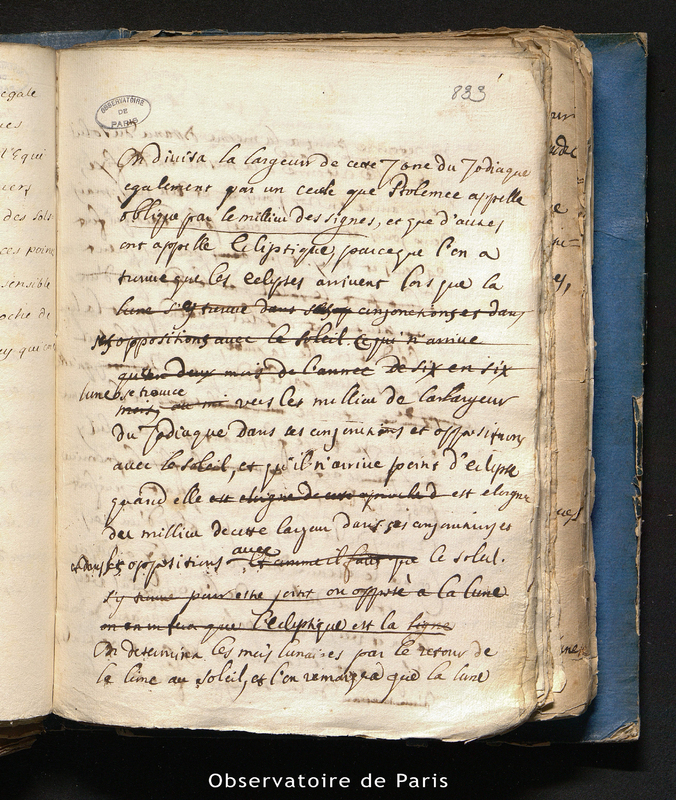 833
OBSERVATOIRE DE PARIS
On divisa la largeur de cette Zone du Zodiaque
egalement par un cercle que Ptolemée appelle
oblique par le millieu des signes, et que d'autres
ont appellé l'Ecliptique, parceque l'on a
trouvé que les eclipses arrivent lorsque la
lune s'y trouve dans ses conjonctions et dans
ses oppositions avec le soleil ce qui n'arrive
qu'en deux mois de l'année De six en six
lune se trouve
mois, ou vers les millieu de la largeur
du Zodiaque dans ses conjonctions et oppositions
avec le soleil, et qu'il n'arrive point d'eclipse
quand elle est eloignée de est eloignée
du millieu de cette largeur dans ses conjonctions et
et dans les oppositions avec et comme il faut que le soleil.
s'y trouve pour estre joint ou opposé a la lune
que l'ecliptique est la ligne
On determina les mois lunaires par le retour de
la lune au soleil, et l'on remarqua que la lune
egale
l'Equi
des sols
ces poin
sensible
oche de
Observatoire de Paris